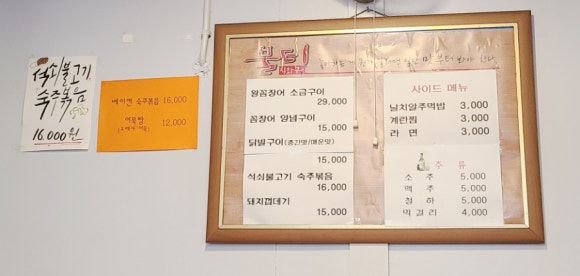 석쇠불고기
숙주볶음
16.000원
베이컨 숙주볶음 16,000
어묵탕 12,000
불티
왕꼼장어 소금구이
29,000
꼼장어 양념구이
15,000
닭발구이(중간맛/매운맛)
15,000
석쇠불고기 숙주볶음
16,000
돼지껍데기
15,000
사이드 메뉴
날치알주먹밥 3,000
계란찜 3,000
라 면 3,000
주 류
소 주 5,000
맥 주 5,000
청 하 5,000
막걸리 4,000